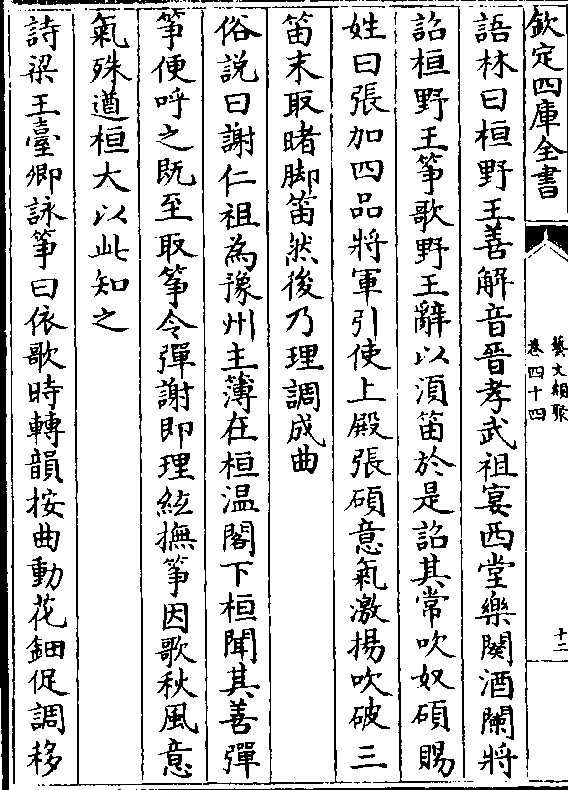 欽定四庫全書
藝文類聚
卷四十四
十二
語林曰桓野王善解音晉孝武祖宴西堂樂闋酒闌將
詔桓野王箏歌野王辭以須笛於是詔其常吹奴碩賜
姓曰張加四品將軍引使上殿張碩意氣激揚吹破三
笛末取睹脚笛然後乃理調成曲
俗說曰謝仁祖為豫州主簿在桓温閣下桓聞其善彈
箏便呼之既至取箏令彈謝即理絃撫箏因歌秋風意
氣殊遒桓大以此知之
詩梁王臺卿詠箏曰依歌時轉韻按曲動花鈿促調移